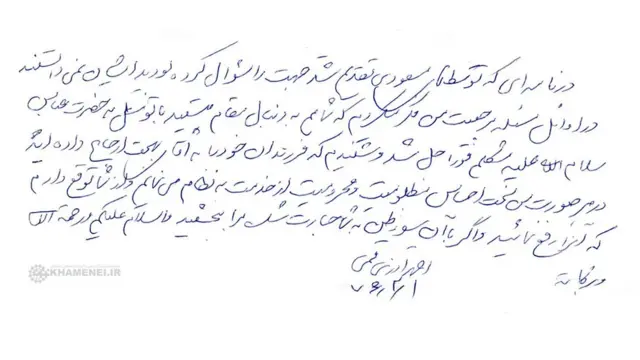 در نامه‌ای که توسط آقای مسعودی تقدیم شد جهت را سؤال کرده بودید ایشان نمی‌دانستند
در اوایل مسئله مرجعیت من فکر می‌کردم که شما هم به دنبال مقام هستید با توسل به حضرت عباس
سلام الله علیه مشکلم فوراً حل شد و شنیدم که فرزندان خود را به آقای بهجت ارجاع داده‌اید
در هر صورت من تحت احساس مظلومیت و محرومیت از خدمت به نظام می‌نمایم و از شما توقع دارم
که آنرا رفع نمائید و اگر با آن سوءظن به شما جسارت شده مرا ببخشید والسلام علیکم و رحمة الله
و برکاته
احمد آذری قمی
۷۶/۳/۱
KHAMENEI.IR